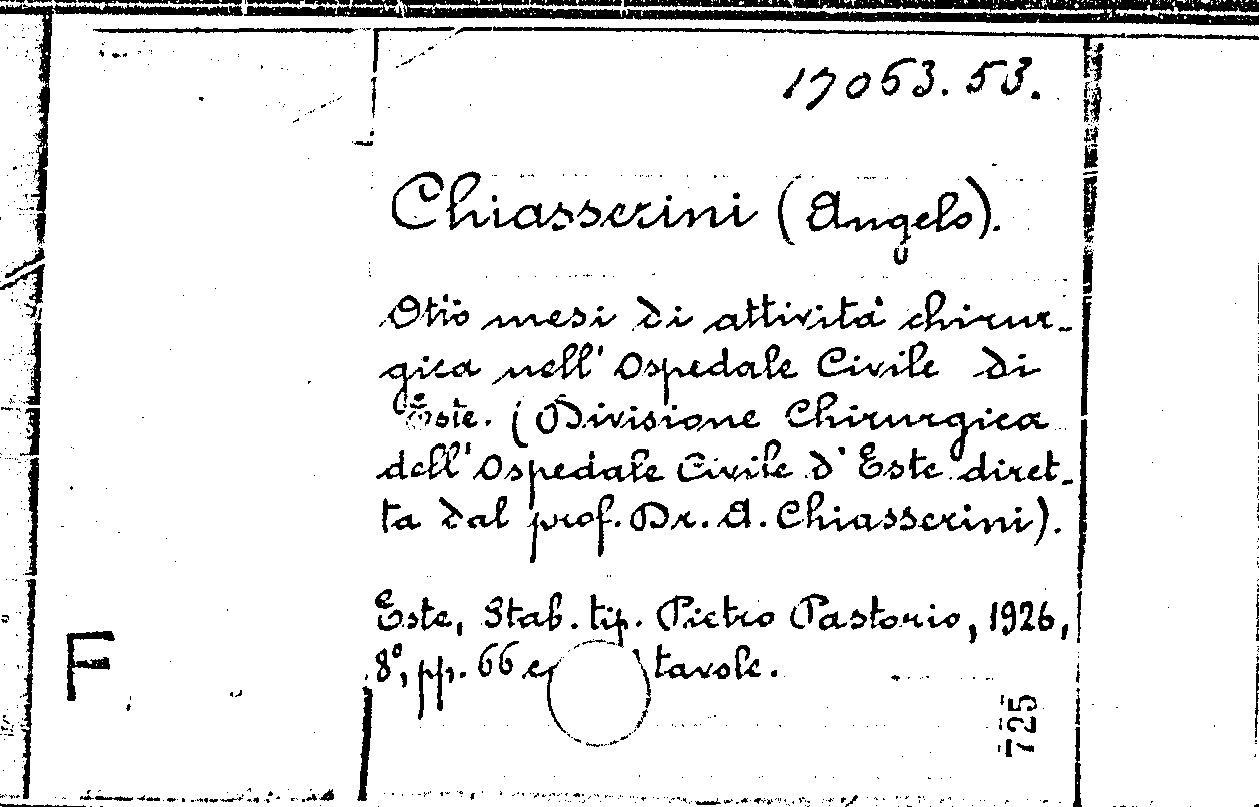 17063.53.
Chiasserini (Angelo).
Otto mesi di attività chirur-
gica nell'Ospedale Civile di
Este. (Divisione Chirurgica
dell'Ospedale Civile d'Este diret-
ta dal prof. Dr. A. Chiasserini).
Este, Stab. tip. Pietro Pastorio, 1926,
8°, pp. 66 e tavole.
F
725